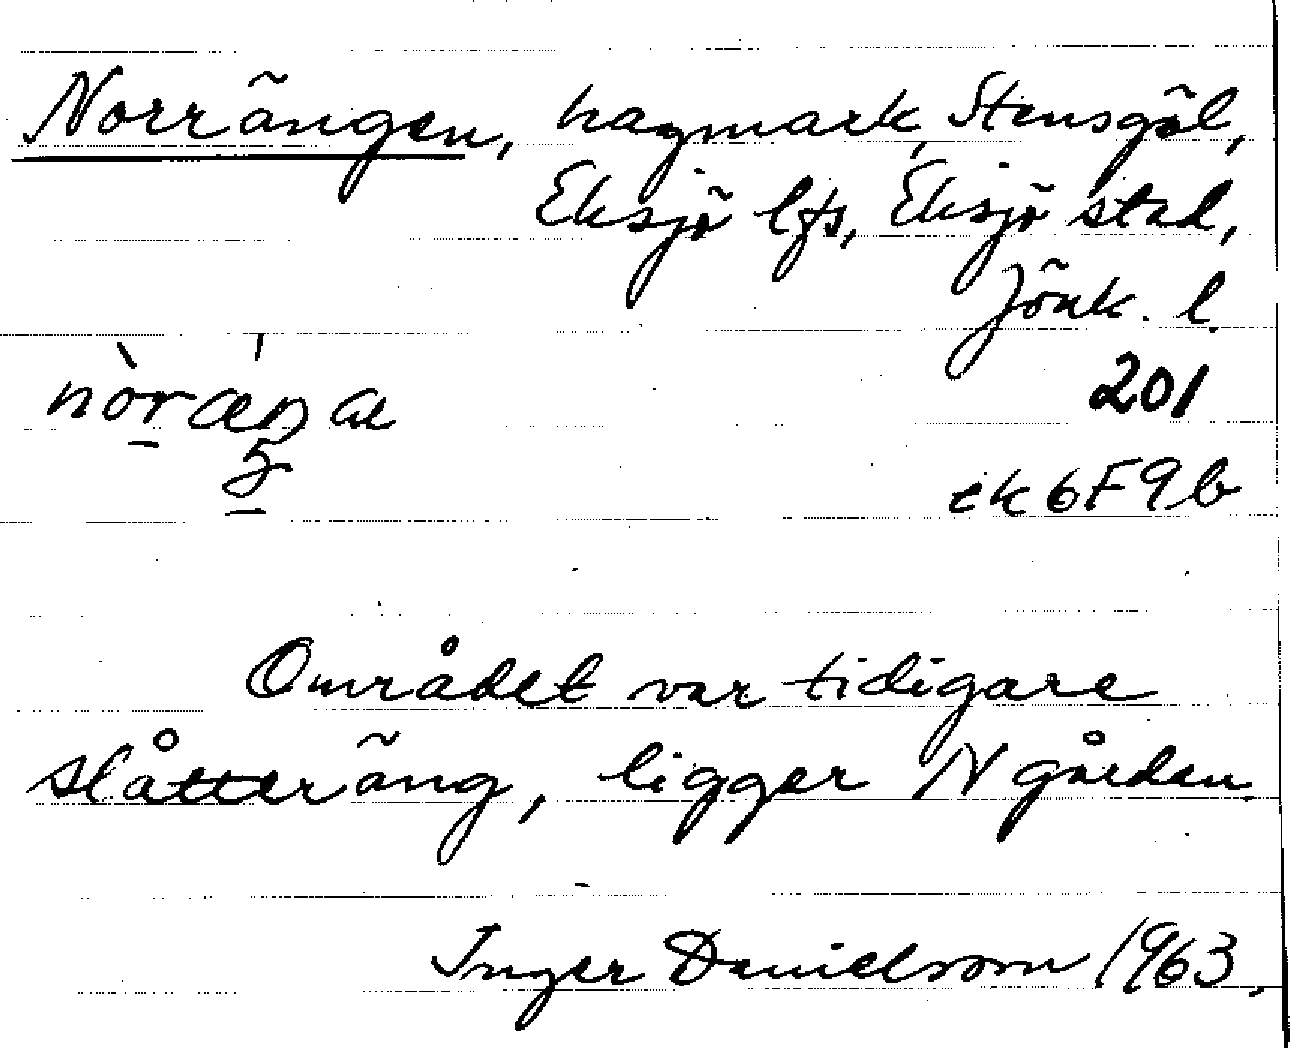 Norrängen, hagmark, Stensgöl,
Eksjö lfs, Eksjö stad,
Jönk. l.
201
ek 6F9b
Området var tidigare
slåtteräng, ligger N gården.
Inger Danielsson 1963.